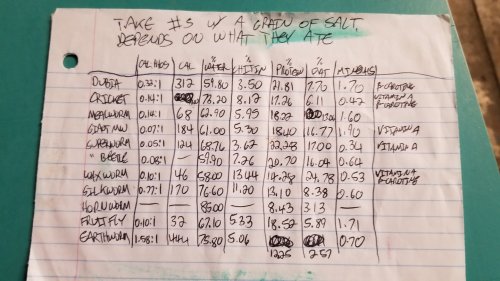 TAKE #S W/ A GRAIN OF SALT.
DEPENDS ON WHAT THEY ATE
CAL:PHOS CAL % WATER % CHITIN % PROTEIN % FAT MINERALS
DUBIA 0.32:1 312 59.80 3.50 21.81 7.70 1.70 B-CAROTENE
CRICKET 0.14:1 73.20 8.17 17.26 6.11 0.42 VITAMIN A B-CAROTENE
MEALWORM 0.14:1 68 62.90 5.95 18.22 1.60
GIANT MW 0.07:1 184 61.00 5.30 18.40 16.77 1.90 VITAMIN A
SUPERWORM 0.05:1 124 68.76 3.62 22.28 17.00 0.34 VITAMIN A
" BEETLE 0.08:1 — 59.90 7.26 20.70 16.04 0.64
WAXWORM 0.10:1 46 58.00 13.44 24.78 0.53 VITAMIN A B-CAROTENE
SILKWORM 0.77:1 170 76.60 11.20 13.10 8.38 0.60
HORNWORM — — 85.00 — 8.43 3.13 —
FRUIT FLY 0.10:1 32 67.10 5.33 18.52 5.89 1.71
EARTHWORM 1.58:1 444 75.80 5.06 0.70
12.25 2.57